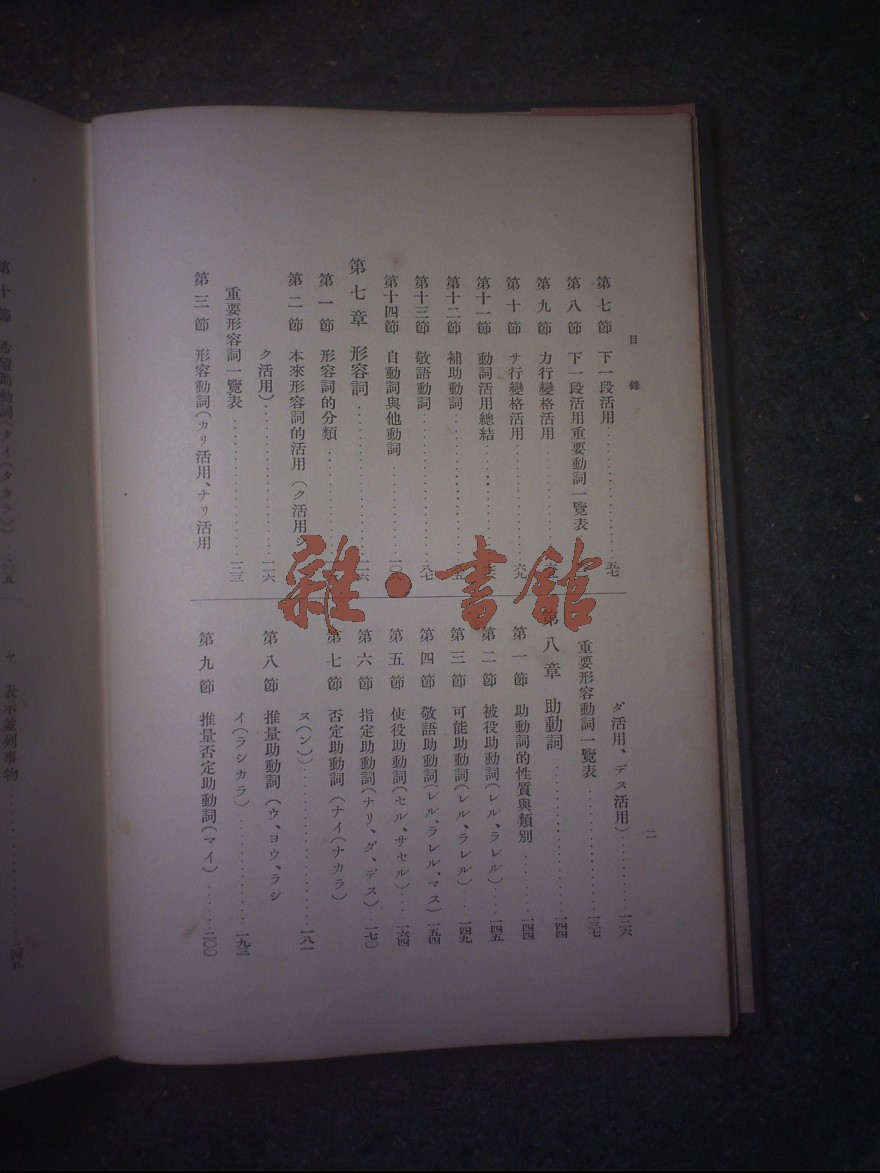 目錄
第七節 下一段活用……五七
第八節 下一段活用重要動詞一覽表
第九節 カ行變格活用
第十節 サ行變格活用……六九
第十一節 動詞活用總結
第十二節 補助動詞
第十三節 敬語動詞……八七
第十四節 自動詞與他動詞
第七章 形容詞……一一六
第一節 形容詞的分類
第二節 本來形容詞的活用(ク活用シ
ク活用)……一一六
重要形容詞一覽表……一二三
第三節 形容動詞(カリ活用、ナリ活用
ダ活用、デス活用)……一二六
重要形容動詞一覽表……一三七
第八章 助動詞……一四四
第一節 助動詞的性質與類別……一四四
第二節 被役助動詞(レル、ラレル)……一四五
第三節 可能助動詞(レル、ラレル)……一四九
第四節 敬語助動詞(レル、ラレル、マス)……一五四
第五節 使役助動詞(セル、サセル)……一六四
第六節 指定助動詞(ナリ、ダ、デス)……一七〇
第七節 否定助動詞(ナイ(ナカラ)
ヌ(ン))……一八一
第八節 推量助動詞(ウ、ヨウ、ラシ
イ(ラシカラ)……一九三
第九節 推量否定助動詞(マイ)……二〇〇
二
第十節 希望助動詞(タイ(タカラ))……二〇五
ヤ 表示並列事物……二四五
雜·書館